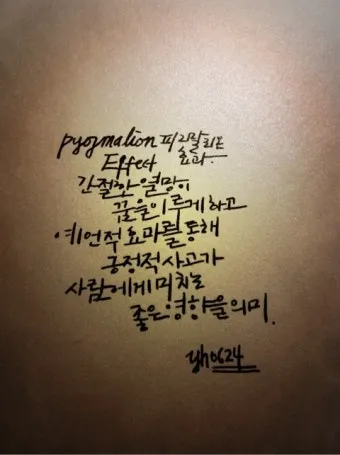 pygmalion 피그말리온
Effect 효과.
간절한 열망이
꿈을 이루게 하고
예언적 효과를 통해
긍정적 사고가
사람에게 미치는
좋은 영향을 의미.
yh0624